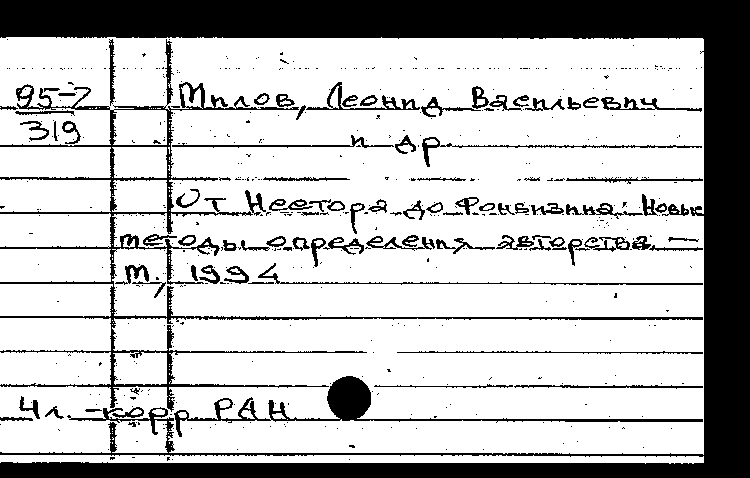 95-7 Милов, Леонид Васильевич
319 и др.
От Нестора до Фонвизина: Новые
методы определения авторства. —
М., 1994
Чл. -корр РАН